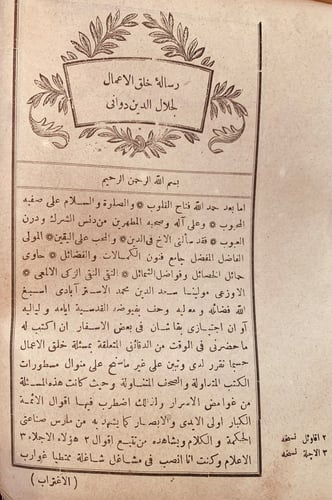 رسالة خلق الاعمال
لجلال الدين دوانى
بسم الله الرحمن الرحيم
اما بعد حمد الله فتاح القلوب * والصلوة والسلام على صفيه
المحبوب * وعلى آله وصحبه المطهرين من دنس الشرك ودرن
العيوب * فقد سألنى الاخ فى الدين * والمحب على اليقين * المولى
الفاضل المفضل جامع فنون الكمالات والفضائل * حاوى
حمائل الخصائل وفواضل الشمائل * التقى النقى الزكى الالمعى *
الاوزعى مولينا سعد الدين محمد الاستر آبادى اسبغ
الله فضائله ومعاليه وحف بفيوض القدسية ايامه ولياليه
آو ان اجتيازى بقاشان فى بعض الاسفار ان اكتب له
ماحضرنى فى الوقت من الدقائق المتعلقة بمسئلة خلق الاعمال
حسبما تقرر لدى وتبين على غير ماسنح على منوال مسطورات
الكتب المتداولة والصحف المتناولة وحيث كانت هذه المسئلة
من غوامض الاسرار ولذلك اضطرب فيها اقوال الائمة
الكبار اولى الايدى والابصار كما يشهد به من مارس صناعتى
الحكمة والكلام ويشاهده من تتبع اقوال ٢ هؤلاء الاجلاء ٣
الاعلام وكنت انا انصب فى مشاغل شاغلة ممتطيا غوارب
٢ اقاويل نسخه
٣ الاجلة نسخه
( الاغتراب )